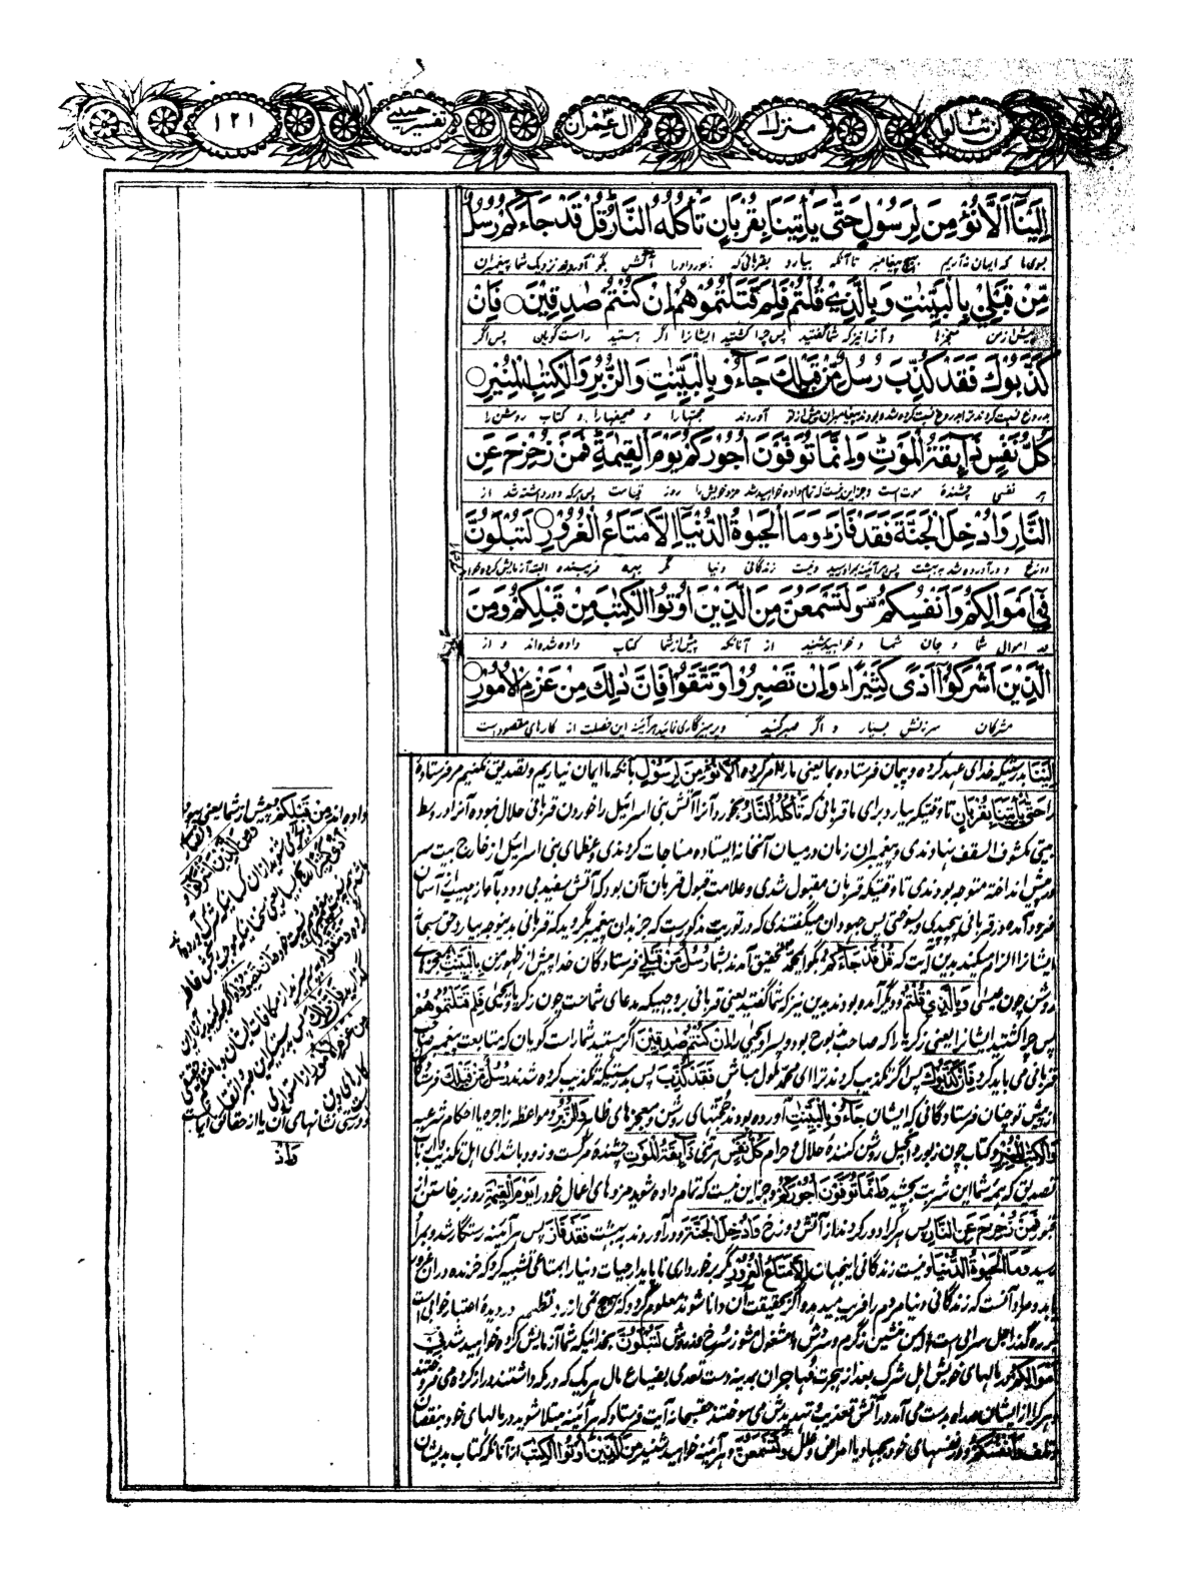 لن تنالوا ۴ منزل ۱ آل عمران ۳ تفسیر حسینی ۱۲۱
اِلَیْنَآ اَلَّا نُؤْمِنَ لِرَسُوْلٍ حَتّٰی یَاْتِیَنَا بِقُرْبَانٍ تَاْکُلُهُ النَّارُ قُلْ قَدْ جَآءَکُمْ رُسُلٌ
بسوی ما که ایمان نه آریم هیچ پیغامبر تا آنکه بیارد بقربانی که بخورد اورا آتش بگو آوردند نزدیک شما پیغمبران
مِّنْ قَبْلِیْ بِالْبَیِّنٰتِ وَبِالَّذِیْ قُلْتُمْ فَلِمَ قَتَلْتُمُوْهُمْ اِنْ کُنْتُمْ صٰدِقِیْنَ ○ فَاِنْ
پیش از من معجزها و آنرا نیز که شما گفتید پس چرا کشتید ایشانرا اگر هستید راست گویان پس اگر
کَذَّبُوْكَ فَقَدْ کُذِّبَ رُسُلٌ مِّنْ قَبْلِكَ جَآءُوْ بِالْبَیِّنٰتِ وَالزُّبُرِ وَالْکِتٰبِ الْمُنِیْرِ ○
بدروغ نسبت کردند ترا بدروغ نسبت کرده شده بودند پیغامبران پیش از تو آوردند حجتها را و صحیفها را و کتاب روشن را
کُلُّ نَفْسٍ ذَآئِقَةُ الْمَوْتِ وَاِنَّمَا تُوَفَّوْنَ اُجُوْرَکُمْ یَوْمَ الْقِیٰمَةِ فَمَنْ زُحْزِحَ عَنِ
هر نفسی چشندهٔ موت است و جز این نیست که تمام داده خواهید شد مزد خویش را روز قیامت پس هرکه دور داشته شد از
النَّارِ وَاُدْخِلَ الْجَنَّةَ فَقَدْ فَازَ وَمَا الْحَیٰوةُ الدُّنْیَآ اِلَّا مَتَاعُ الْغُرُوْرِ ○ لَتُبْلَوُنَّ
دوزخ و در آورده شد به بهشت پس هر آئینه بمراد رسید و نیست زندگانی دنیا مگر بهره فریبنده البته آزمایش کرده خواهید
فِیْٓ اَمْوَالِکُمْ وَاَنْفُسِکُمْ وَلَتَسْمَعُنَّ مِنَ الَّذِیْنَ اُوْتُوا الْکِتٰبَ مِنْ قَبْلِکُمْ وَمِنَ
در اموال شما و جان شما و خواهید شنید از آنانکه پیش از شما کتاب داده شده اند و از
الَّذِیْنَ اَشْرَکُوْٓا اَذًی کَثِیْرًا وَاِنْ تَصْبِرُوْا وَتَتَّقُوْا فَاِنَّ ذٰلِكَ مِنْ عَزْمِ الْاُمُوْرِ ○
مشرکان سرزنش بسیار و اگر صبر کنید و پرهیزگاری نمائید هر آئینه این خصلت از کارهای مقصود است
اِلَیْنَا بدرستیکه خدای عهد کرده و پیمان فرستاده بما یعنی ما را امر کرده اَلَّا نُؤْمِنَ لِرَسُوْلٍ بآنکه ما ایمان نیاریم و تصدیق نکنیم مر فرستادهٔ
را حَتّٰی یَاْتِیَنَا بِقُرْبَانٍ تا وقتیکه بیارد برای ما قربانی که تَاْکُلُهُ النَّارُ بخورد آنرا آتش بنی اسرائیل را خوردن قربانی حلال نبوده آنرا در وسط
بیتی مکشوف السقف نهادندی و پیغمبر آن زمان در میان آنخانه ایستاده مناجات کردندی و عظمای بنی اسرائیل از خارج بیت سر
در پیش انداخته متوجه بودندی تا وقتیکه قربان مقبول شدی و علامت قبول قربان آن بود که آتش سفید بی دود با آواز مهیب از آسمان
فرود آمده در قربانی پیچیدی و بسوختی پس جهودان میگفتندی که در توریت مذکورست که جز بدان پیغمبر نگروید که قربانی بدینوجه بیارد حق سبحانه
ایشانرا الزام میکند بدین آیت که قُلْ قَدْ جَآءَکُمْ بگو ای محمد بتحقیق آمدند بشما رُسُلٌ مِّنْ قَبْلِیْ فرستادگان خدا پیش از ظهور من بِالْبَیِّنٰتِ بمعجزهای
روشن چون عیسی وَبِالَّذِیْ قُلْتُمْ و دیگر آمده بودند بدین نیز که شما گفتید یعنی قربانی بروجهیکه مدعای شماست چون زکریا و یحیی فَلِمَ قَتَلْتُمُوْهُمْ
پس چرا کشتید ایشانرا یعنی زکریا را که صاحب مذبوح بود و پسر او یحیی را اِنْ کُنْتُمْ صٰدِقِیْنَ اگر هستید شما راست گویان که متابعت پیغمبر صاحب
قربانی می باید کرد فَاِنْ کَذَّبُوْكَ پس اگر تکذیب کردند ترا ای محمد ملول مباش فَقَدْ کُذِّبَ پس بدرستیکه تکذیب کرده شدند رُسُلٌ مِّنْ قَبْلِكَ فرستادگان
از پیش تو چنان فرستادگانی که ایشان جَآءُوْ بِالْبَیِّنٰتِ آورده بودند حجتهای روشن و معجزهای ظاهر وَالزُّبُرِ و مواعظ زاجره یا احکام شرعیه
وَالْکِتٰبِ الْمُنِیْرِ و کتاب چون زبور و انجیل روشن کنندهٔ حلال و حرام کُلُّ نَفْسٍ هر تنی ذَآئِقَةُ الْمَوْتِ چشندهٔ مرگست و زود باشد ای اهل تکذیب و ارباب
تصدیق که همه شما این شربت بچشید وَاِنَّمَا تُوَفَّوْنَ اُجُوْرَکُمْ و جز این نیست که تمام داده شوید مزدهای اعمال خود را یَوْمَ الْقِیٰمَةِ روز برخاستن از
قبور فَمَنْ زُحْزِحَ عَنِ النَّارِ پس هر کرا دور کردند از آتش دوزخ وَاُدْخِلَ الْجَنَّةَ و در آوردند به بهشت فَقَدْ فَازَ پس هر آئینه رستگار شد و بمراد
رسید وَمَا الْحَیٰوةُ الدُّنْیَا و نیست زندگانی اینجهان اِلَّا مَتَاعُ الْغُرُوْرِ مگر برخورداری ناپایدار حیات دنیا را بمتاعی تشبیه کرد که خرنده در آن غرور
یابد و مراد آنست که زندگانی دنیا مردم را فریب میدهد اگر حقیقت آن دانا شوند معلوم گردد که بهیچ نمی ارزد
لَتُبْلَوُنَّ بخدائیکه شما آزمایش کرده خواهید شد فِیْٓ
اَمْوَالِکُمْ در مالهای خویش اهل شرک بعد از هجرت مهاجران بمدینه دست تعدی بضیاع مال هریک که در مکه داشتند دراز کرده می فروختند
و هر کرا از ایشان بدست می آمد در آتش تعذیب و تهدیدش می سوختند حق سبحانه آیت فرستاد که هر آئینه مبتلا شوید در مالهای خود بنقصان
و تلف وَاَنْفُسِکُمْ و در نفسهای خود بجهاد یا امراض و علل وَلَتَسْمَعُنَّ و هر آئینه خواهید شنید مِنَ الَّذِیْنَ اُوْتُوا الْکِتٰبَ از آنانکه کتاب بدیشان
داده اند مِنْ قَبْلِکُمْ پیش از شما یعنی یهود
و نصاری وَمِنَ الَّذِیْنَ اَشْرَکُوْٓا و
دیگر می شنوید از آن کسانیکه شرک آورده اند
اَذًی کَثِیْرًا